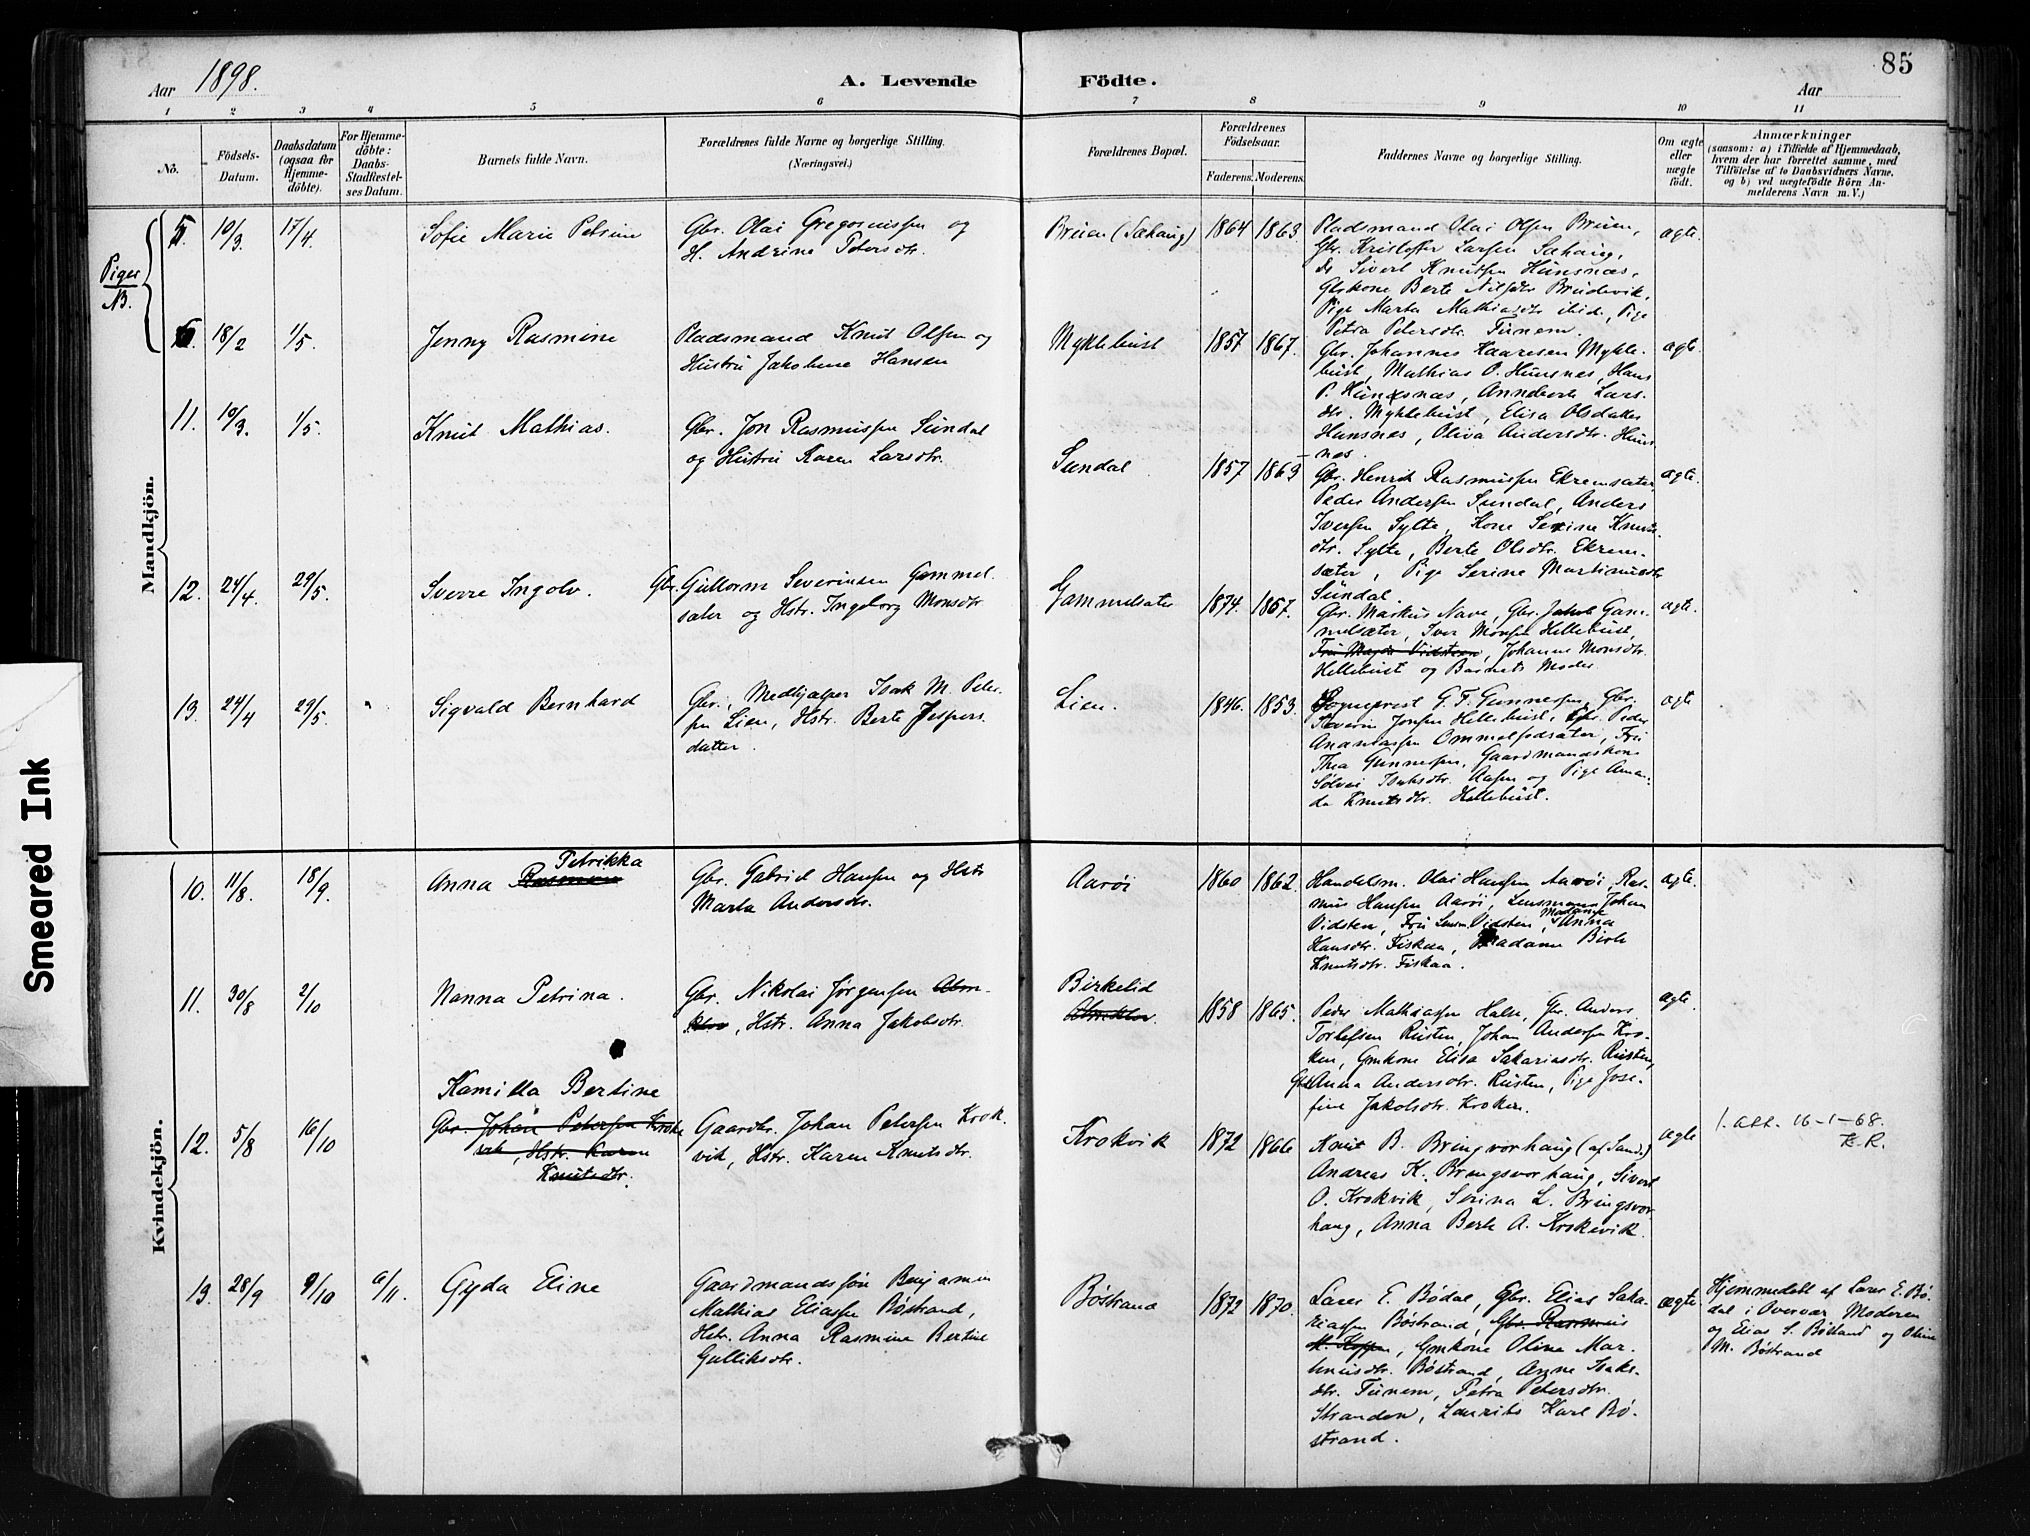 85
Aar 1898.
A. Levende Födte.
Aar
1 2 3 4 5 6 7 8 9 10 11
No.
Födsels-
Datum.
Daabsdatum
(ogsaa for
Hjemme-
döbte).
For Hjemme-
döbte:
Daabs-
Stadfæstel-
ses Datum.
Barnets fulde Navn.
Forældrenes fulde Navne og borgerlige Stilling.
(Næringsvei.)
Forældrenes Bopæl.
Forældrenes
Födselsaar.
Faderens. Moderens.
Faddernes Navne og borgerlige Stilling.
Om ægte
eller
uægte
födt.
Anmærkninger
(saasom: a) i Tilfælde af Hjemmedaab,
hvem der har forrettet samme, med
Tilföielse af to Daabsvidners Navne,
og b) ved uægtefödte Börn An-
melderens Navn m. V.)
Piger
NB.
5. 10/3. 17/4.
Sofie Marie Petrine
Gbr. Olai Gregoriussen og
H. Andrine Petersdtr.
Brüen (Sæhaug)
1864 1863
Pladsmand Olai Olsen Brüen,
Gbr. Kristoffer Larsen Sæhaug,
do Sivert Knutsen Hünsnæs,
Gbrkone Berte Nilsdtr Brüdevik,
Pige Marta Mathiasdtr ibid., Pige
Petra Petersdtr. Tünem.
ægte.
6. 18/2 1/5.
Jenny Rasmine
Pladsmand Knut Olsen og
Hüstrü Jakobine Hansen
Myklebüst
1857 1867.
Gbr. Johannes Kaaresen Mykle-
büst, Mathias O. Hünsnes, Hans
P. Hünsnæs, Anneberte Lars-
dtr. Myklebüst, Elisa Olsdatter
Hünsnes, Oliva Andersdtr. Hüns-
nes.
ægte.
Mandkjön.
11. 10/3. 1/5.
Knut Mathias.
Gbr. Jon Rasmussen Sündal
og Hüstrü Karen Larsdtr.
Sundal
1857 1863
Gbr. Henrik Rasmussen Ekremsæter,
Peder Andersen Sundal, Anders
Iversen Sylte, Kone Serine Knuts-
dtr. Sylte, Berte Olsdtr. Ekrem-
sæter, Pige Serine Martinusdtr
Sündal.
ægte.
12. 24/4. 29/5.
Sverre Ingolv.
Gbr. Gullorm Severinsen Gammel-
sæter og Hstr. Ingeborg Monsdtr
Gammelsæter
1874. 1867.
Gbr. Markus Nave, Gbr. Jakob Gam-
melsæter, Iver Monsen Hellebüst,
Frü Magda Vidsteen, Johanne Monsdtr.
Hellebüst og Barnets Moder.
ægte.
13. 24/4 29/5.
Sigvald Bernhard
Gbr., Medhjælper Isak M. Peter-
sen Lien, Hstr. Berte Jespers-
datter.
Lien.
1846. 1853.
Sogneprest G. F. Gunnesen, Gbr.
Severin Jonsen Hellebüst, Gbr. Peder
Ananiassen Ommelfodsæter, Frü
Thea Gunnesen, Gaardmandskone
Sølvei Isaksdtr. Aasen og Pige Aman-
da Knutsdtr. Hellebüst.
ægte
Kvindekjön.
10. 11/8. 18/9.
Petrikka
Anna
Gbr. Gabriel Hansen og Hstr
Marta Andersdtr.
Aarøi
1860 1862.
Handelsm. Olai Hansen Aarøi, Ras-
mus Hansen Aarøi, Lensmann Johan
Vidsten, Frü Lensm. Vidsten, Madame Anna
Hansdtr. Fiskaa, Madame Birte
Knutsdtr. Fiskaa.
ægte.
11. 30/8 2/10
Nanna Petrina.
Gbr. Nikolai Jørgensen Alm-
klov, Hstr. Anna Jakobsdtr.
Birkelid
Almklov.
1858 1865.
Peder Mathiassen Halse, Gbr. Anders
Torlefsen Rüsten, Johan Andersen Kro-
ken, Gmkone Elisa Sakariasdtr. Rüsten,
Anna Andersdtr. Rüsten, Pige Jose-
fine Jakobsdtr. Kroken.
ægte.
12. 5/8 16/10
Kamilla Bertine
Gbr. Johan Petersen Krok-
vik, Hstr. Karen
Knutsdtr.
Gaardbr. Johan Petersen Krok-
vik, Hstr. Karen Knutsdtr.
Krokvik
1872 1866
Knut B. Bringsvorhaug (af Sande)
Andreas K. Bringsvorhaug, Sivert
O. Krokvik, Serina L. Bringsvor-
haug, Anna Berte A. Krokevik.
ægte
1. att. 16-1-68.
K.R.
13. 28/9 9/10 6/11.
Gyda Eline
Gaardmandssøn Benjamin
Mathias Eliassen Bøstrand,
Hstr. Anna Rasmine Bertine
Gulliksdtr.
Bøstrand
1872 1870.
Lærer E. Bødal, Gbr. Elias Saka-
riassen Bøstrand, Gbr. Rasmus
M. Koppen, Gmkone Oline Mar-
tinusdtr. Bøstrand, Anne Isaks-
dtr. Tünem, Petra Petersdtr.
Stranden, Laurits Karl Bø-
strand.
ægte
Hjemmedøbt af Lærer E. Bø-
dal i Overvær Moderen
og Elias S. Bøstrand og Oline
M. Bøstrand
Smeared Ink